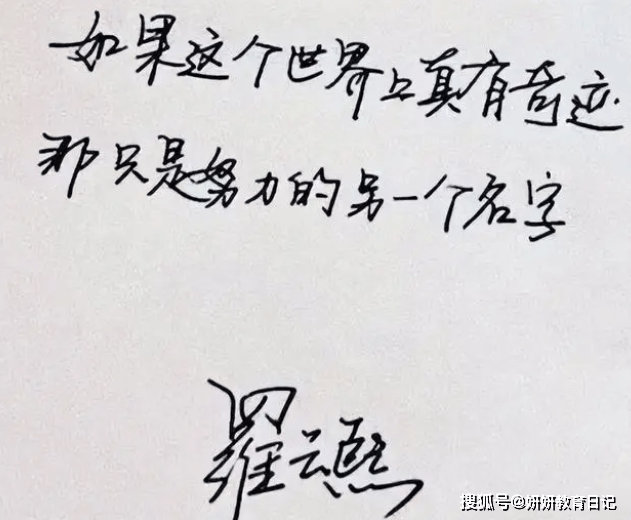 如果这个世界上真有奇迹
那只是努力的另一个名字
羅云熙
搜狐号@妍妍教育日记